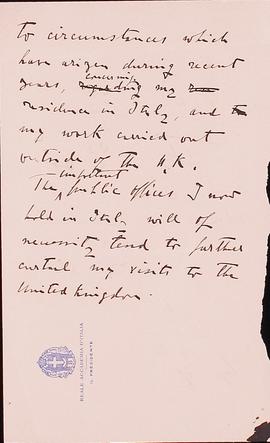 to circumstances which
have arisen during recent
years, concerning my
residence in Italy, and
my work carried out
outside of the U.K.
The important public offices I now
hold in Italy will of
necessity tend to further
curtail my visits to the
United Kingdom.
REALE ACCADEMIA D'ITALIA
IL PRESIDENTE